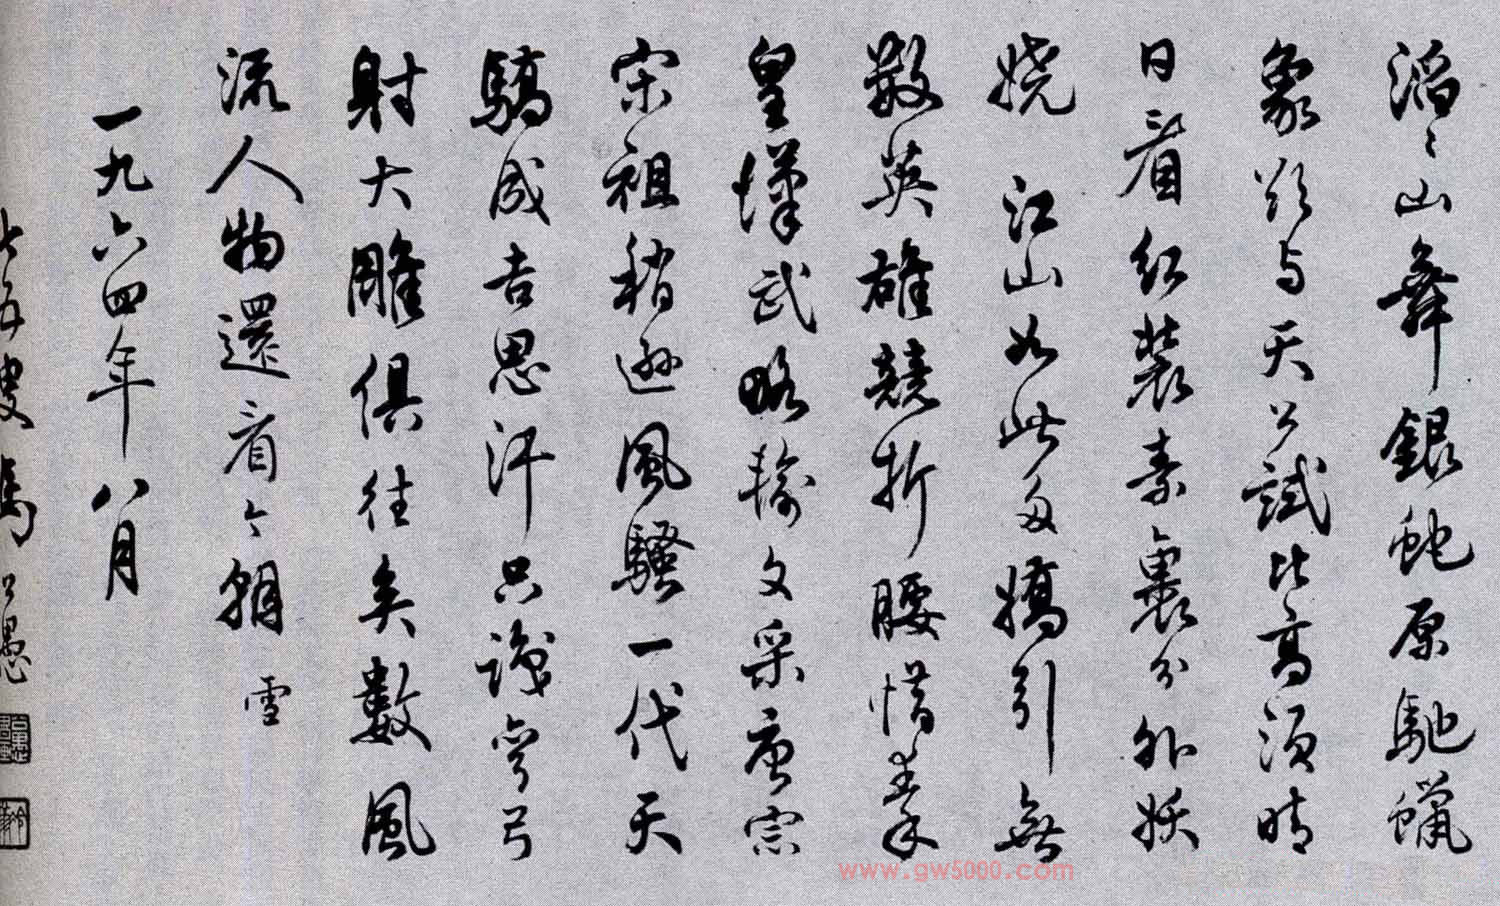 滔〻山舞銀蛇原馳蠟
象欲与天公試比高須晴
日看紅裝素裹分外妖
嬈江山如此多嬌引無
數英雄競折腰惜秦
皇漢武略輸文采唐宗
宋祖稍遜風騷一代天
驕成吉思汗只識彎弓
射大雕俱往矣數風
流人物還看今朝 雪
一九六四年八月
馬公愚
www.gw5000.com